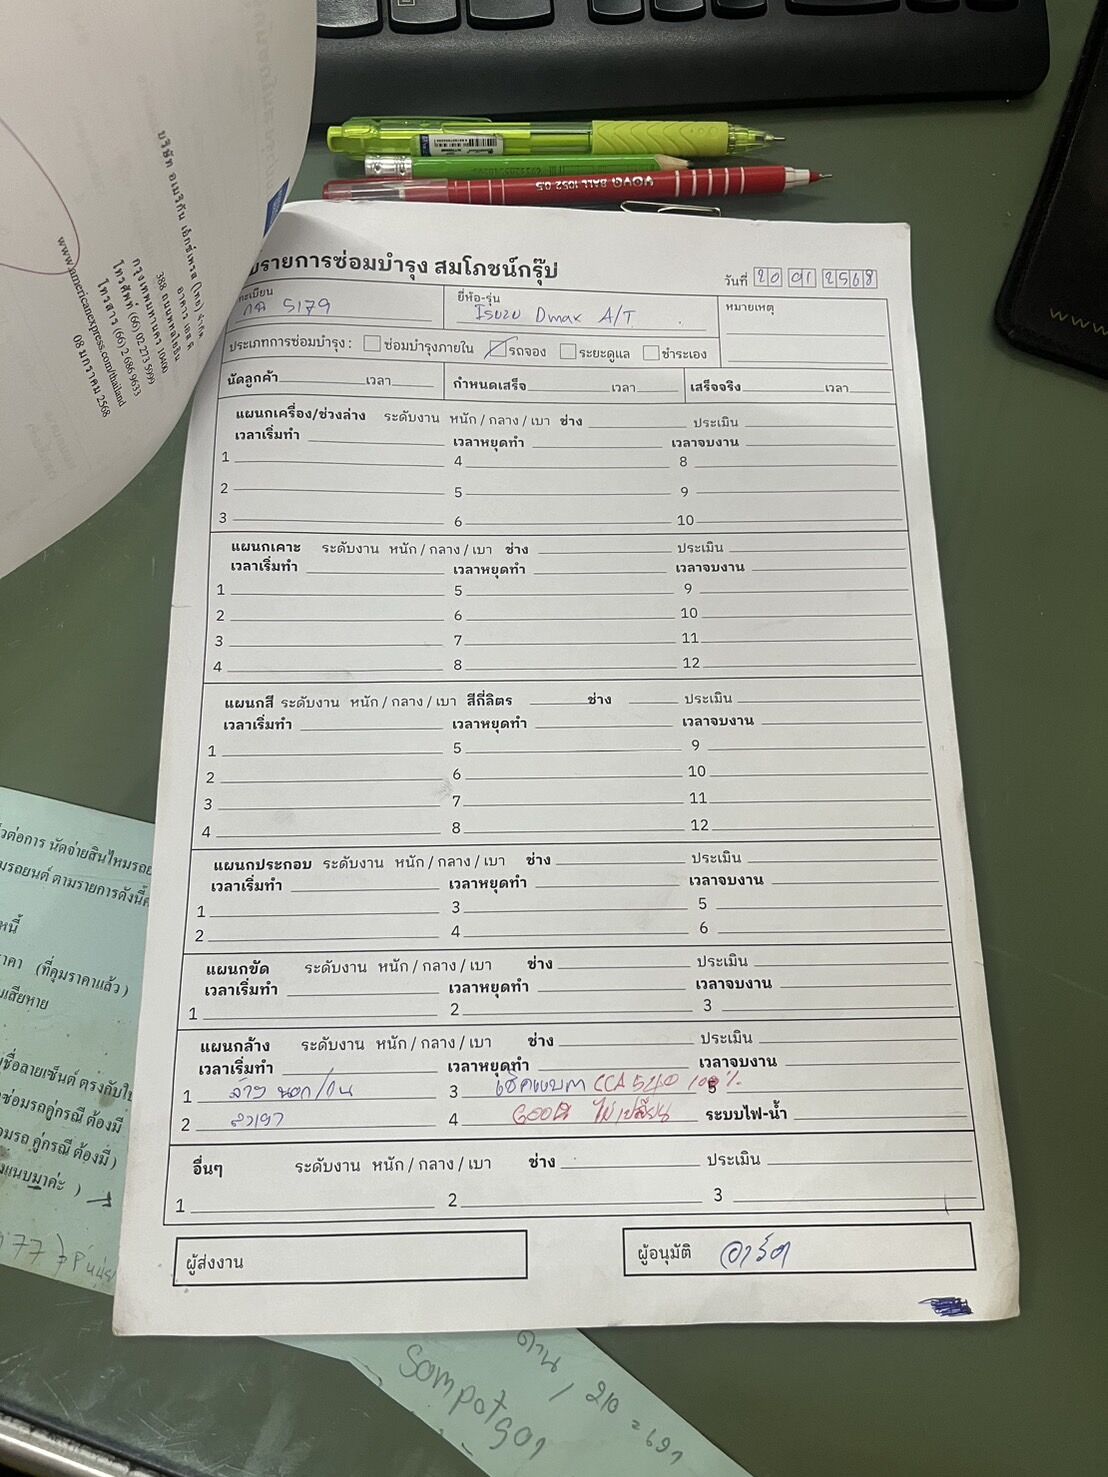 บริษัท อเมริกัน เอ็กซ์เพรส (ไทย) จำกัด
อาคาร เอส.พี.
388 ถนนพหลโยธิน
กรุงเทพมหานคร 10400
โทรศัพท์ (66) 02 273 5999
โทรสาร (66) 2 686 9633
www.americanexpress.com/thailand
08 มกราคม 2568
YOYA BALL 1052 0.5
รายการซ่อมบำรุง สมโภชน์กรุ๊บ่
วันที่ 20 01 2568
ทะเบียน 5179
ยี่ห้อ-รุ่น Isuzu Dmax A/T
หมายเหตุ
ประเภทการซ่อมบำรุง : ซ่อมบำรุงภายใน รถจอง ระยะดูแล ชำระเอง
นัดลูกค้า เวลา กำหนดเสร็จ เวลา เสร็จจริง เวลา
แผนกเครื่อง/ช่วงล่าง ระดับงาน หนัก / กลาง / เบา ช่าง ประเมิน
เวลาเริ่มทำ เวลาหยุดทำ เวลาจบงาน
1 4 8
2 5 9
3 6 10
แผนกเคาะ ระดับงาน หนัก / กลาง / เบา ช่าง ประเมิน
เวลาเริ่มทำ เวลาหยุดทำ เวลาจบงาน
1 5 9
2 6 10
3 7 11
4 8 12
แผนกสี ระดับงาน หนัก / กลาง / เบา สีกี่ลิตร ช่าง ประเมิน
เวลาเริ่มทำ เวลาหยุดทำ เวลาจบงาน
1 5 9
2 6 10
3 7 11
4 8 12
แผนกประกอบ ระดับงาน หนัก / กลาง / เบา ช่าง ประเมิน
เวลาเริ่มทำ เวลาหยุดทำ เวลาจบงาน
1 3 5
2 4 6
แผนกขัด ระดับงาน หนัก / กลาง / เบา ช่าง ประเมิน
เวลาเริ่มทำ เวลาหยุดทำ เวลาจบงาน
1 2 3
แผนกล้าง ระดับงาน หนัก / กลาง / เบา ช่าง ประเมิน
เวลาเริ่มทำ เวลาหยุดทำ เวลาจบงาน
1 ล้าง นอก/ใน 3 เช็คแบต CCA 540 100% 5
2 4 GOOD ไม่เปลี่ยน ระบบไฟ-น้ำ
อื่นๆ ระดับงาน หนัก / กลาง / เบา ช่าง ประเมิน
1 2 3
ผู้ส่งงาน
ผู้อนุมัติ อาร์ต
วต่อการ นัดจ่ายสินไหมรถย
มรถยนต์ ตามรายการดังนี้ค
หนี้
าคา (ที่คุมราคาแล้ว)
มเสียหาย
ชื่อลายเซ็นต์ ตรงกับใบ
ซ่อมรถคู่กรณี ต้องมี
อมรถ คู่กรณี ต้องมี)
งแนบมาค่ะ )
77
Sompotgor
210 =